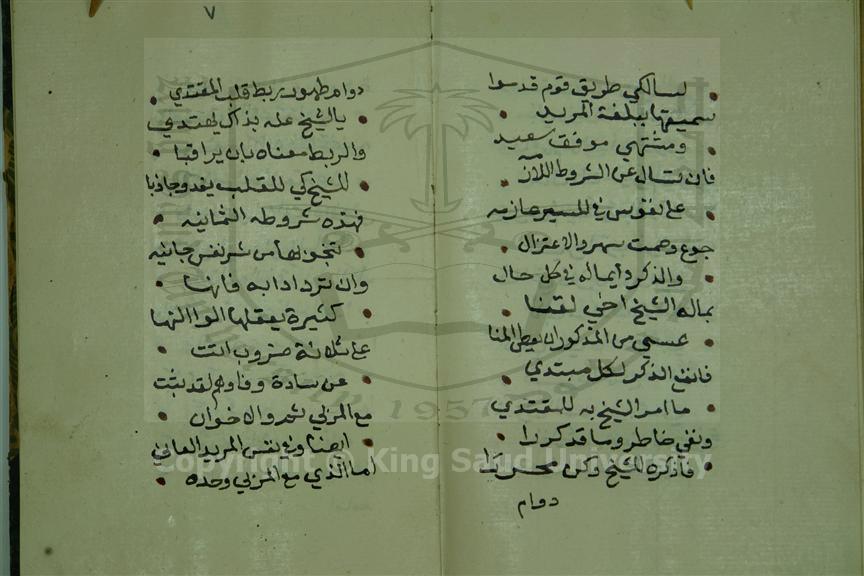 لسالكي طريق قوم قدسوا
سميتها ببلغة المريد
ومشتهي موفق سعيد
فان تسال عن الشروط اللآت
على نفوس في المسير حازمه
جوع وصمت سهر والاعتزال
والذكر دأبا له في كل حال
بماله الشيخ اخي لقنا
عسى من المذكور ان يعطى المنا
فانفع الذكر لكل مبتدي
ما امر الشيخ به للمقتدي
ونفي خاطر وما قد كررا
فاذكره للشيخ وكن
دوام
٧
دوام طهور ربط قلب المقتدي
بالشيخ عله بذاك يهتدي
والربط معناه بان يراقبا
للشيخ كي للقلب يغدو جاذبا
فهذه شروطه الثمانيه
تنجو بها من شر نفس جانيه
وان ترد ادابه فانها
كثيرة يعقلها
على ثلاثة ضروب اتت
عن سادة وفاوهم لقد ثبت
مع المربي ثم والاخوان
ايضا وفي نفس المريد العاني
اما الذي مع المربي وحده
Copyright © King Saud University
1957